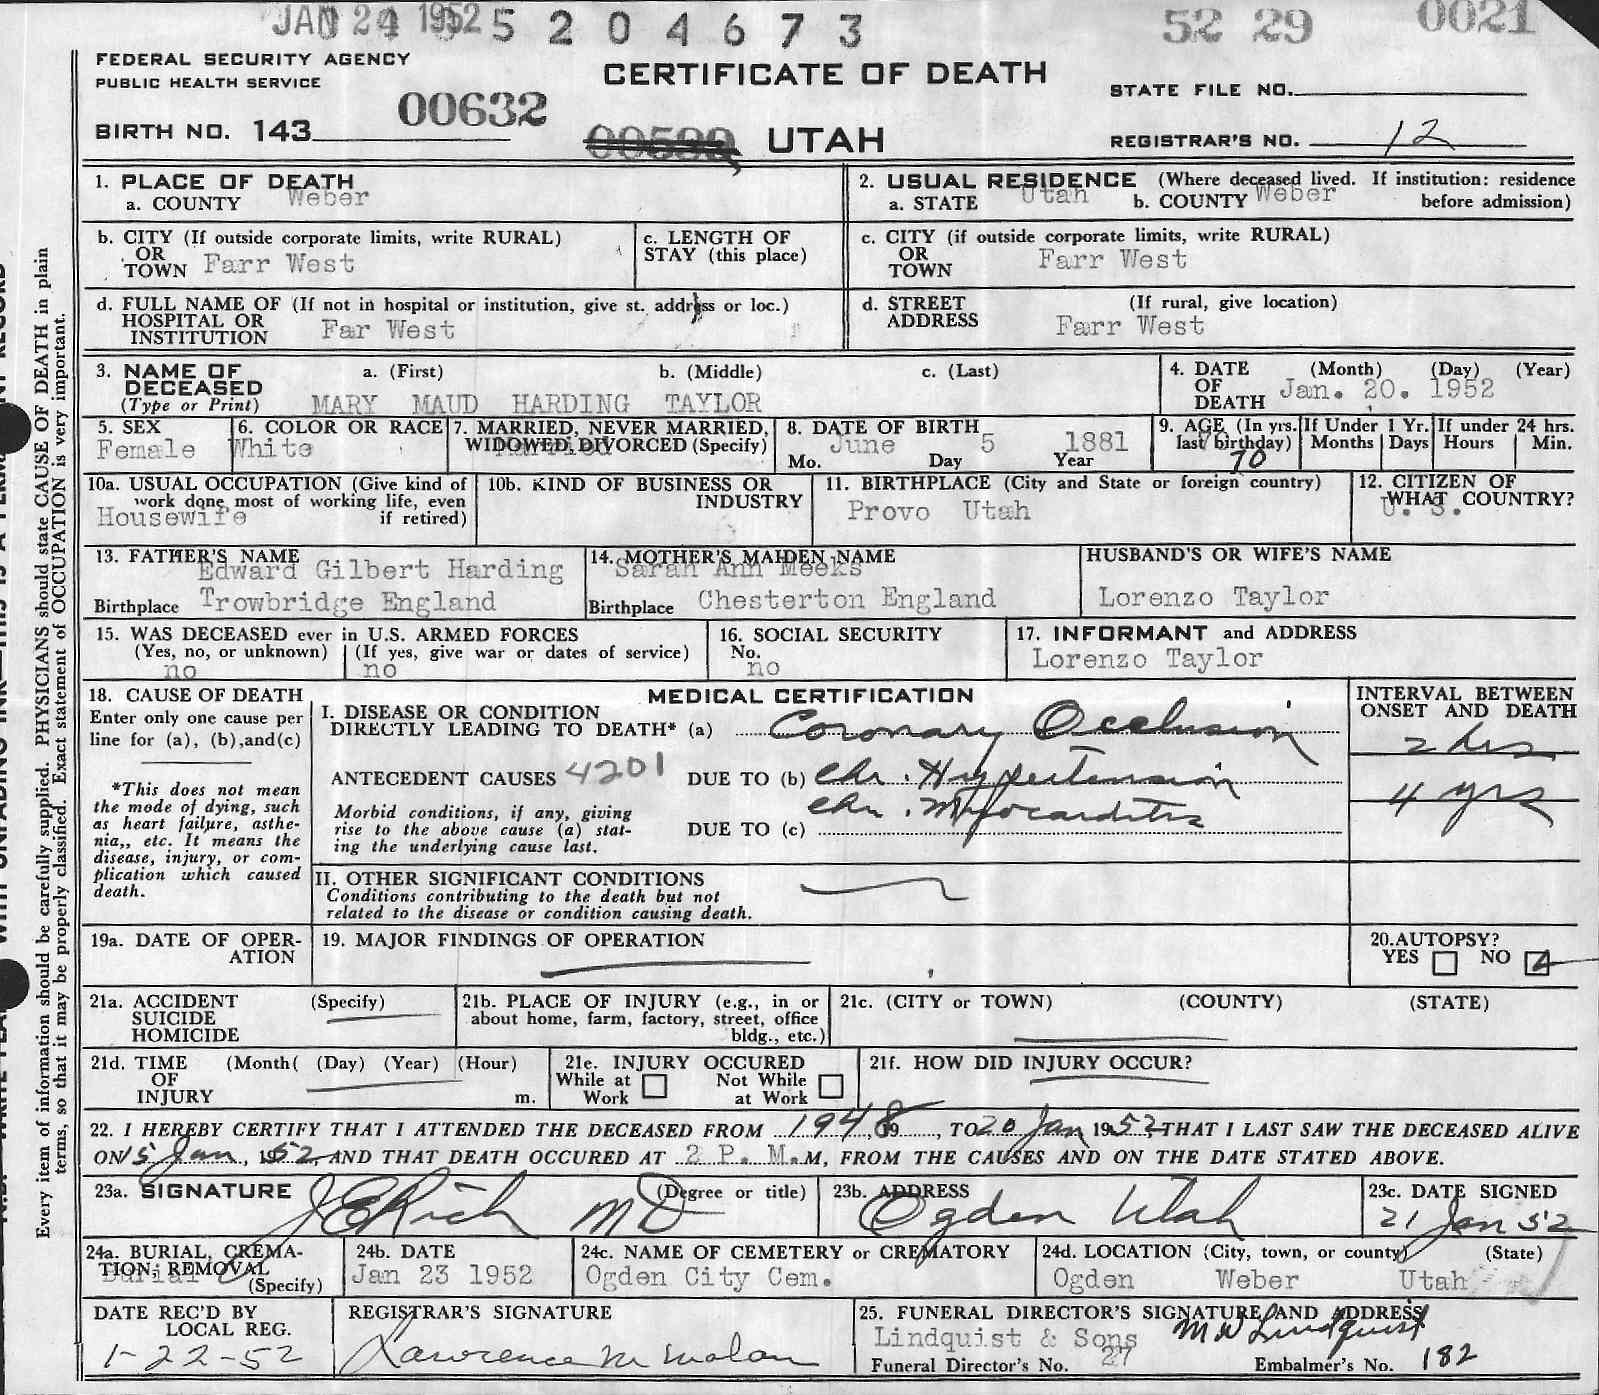 JAN 24 1952 5 2 0 4 6 7 3 52 29 0021
FEDERAL SECURITY AGENCY
PUBLIC HEALTH SERVICE
CERTIFICATE OF DEATH
STATE FILE NO.
BIRTH NO. 143 00632
UTAH
REGISTRAR'S NO. 12
1. PLACE OF DEATH
a. COUNTY Weber
2. USUAL RESIDENCE (Where deceased lived. If institution: residence before admission)
a. STATE Utah b. COUNTY Weber
b. CITY (If outside corporate limits, write RURAL)
OR
TOWN Farr West
c. LENGTH OF
STAY (this place)
c. CITY (if outside corporate limits, write RURAL)
OR
TOWN Farr West
d. FULL NAME OF (If not in hospital or institution, give st. address or loc.)
HOSPITAL OR
INSTITUTION Far West
d. STREET (If rural, give location)
ADDRESS Farr West
3. NAME OF a. (First) b. (Middle) c. (Last)
DECEASED
(Type or Print) MARY MAUD HARDING TAYLOR
4. DATE (Month) (Day) (Year)
OF
DEATH Jan. 20. 1952
5. SEX
Female
6. COLOR OR RACE
White
7. MARRIED, NEVER MARRIED,
WIDOWED, DIVORCED (Specify)
Married
8. DATE OF BIRTH
June 5 1881
Mo. Day Year
9. AGE (In yrs.
last birthday)
70
If Under 1 Yr.
Months Days
If under 24 hrs.
Hours Min.
10a. USUAL OCCUPATION (Give kind of
work done most of working life, even
if retired)
Housewife
10b. KIND OF BUSINESS OR
INDUSTRY
11. BIRTHPLACE (City and State or foreign country)
Provo Utah
12. CITIZEN OF
WHAT COUNTRY?
U. S.
13. FATHER'S NAME
Edward Gilbert Harding
Birthplace Trowbridge England
14. MOTHER'S MAIDEN NAME
Sarah Ann Meeks
Birthplace Chesterton England
HUSBAND'S OR WIFE'S NAME
Lorenzo Taylor
15. WAS DECEASED ever in U.S. ARMED FORCES
(Yes, no, or unknown) (If yes, give war or dates of service)
no no
16. SOCIAL SECURITY
No.
no
17. INFORMANT and ADDRESS
Lorenzo Taylor
18. CAUSE OF DEATH
Enter only one cause per
line for (a), (b),and(c)
*This does not mean
the mode of dying, such
as heart failure, asthe-
nia,, etc. It means the
disease, injury, or com-
plication which caused
death.
MEDICAL CERTIFICATION
I. DISEASE OR CONDITION
DIRECTLY LEADING TO DEATH* (a) Coronary Occlusion
ANTECEDENT CAUSES 4201 DUE TO (b) Chr. Hypertension
Chr. Myocarditis
Morbid conditions, if any, giving
rise to the above cause (a) stat-
ing the underlying cause last.
DUE TO (c)
INTERVAL BETWEEN
ONSET AND DEATH
2 hrs
4 yrs
II. OTHER SIGNIFICANT CONDITIONS
Conditions contributing to the death but not
related to the disease or condition causing death.
19a. DATE OF OPER-
ATION
19. MAJOR FINDINGS OF OPERATION
20. AUTOPSY?
YES NO
21a. ACCIDENT (Specify)
SUICIDE
HOMICIDE
21b. PLACE OF INJURY (e.g., in or
about home, farm, factory, street, office
bldg., etc.)
21c. (CITY or TOWN) (COUNTY) (STATE)
21d. TIME (Month( (Day) (Year) (Hour)
OF
INJURY m.
21e. INJURY OCCURED
While at Work Not While at Work
21f. HOW DID INJURY OCCUR?
22. I HEREBY CERTIFY THAT I ATTENDED THE DECEASED FROM 1948, 19, TO 20 Jan 1952, THAT I LAST SAW THE DECEASED ALIVE
ON 15 Jan, 1952, AND THAT DEATH OCCURED AT 2 P. M. M, FROM THE CAUSES AND ON THE DATE STATED ABOVE.
23a. SIGNATURE (Degree or title)
J E Rich MD
23b. ADDRESS
Ogden Utah
23c. DATE SIGNED
21 Jan 52
24a. BURIAL, CREMA-
TION, REMOVAL
(Specify)
Burial
24b. DATE
Jan 23 1952
24c. NAME OF CEMETERY or CREMATORY
Ogden City Cem.
24d. LOCATION (City, town, or county) (State)
Ogden Weber Utah
DATE REC'D BY
LOCAL REG.
1-22-52
REGISTRAR'S SIGNATURE
Lawrence M Malan
25. FUNERAL DIRECTOR'S SIGNATURE AND ADDRESS
Lindquist & Sons M W Lindquist
Funeral Director's No. 27 Embalmer's No. 182
Every item of information should be carefully supplied. PHYSICIANS should state CAUSE OF DEATH in plain
terms, so that it may be properly classified. Exact statement of OCCUPATION is very important.